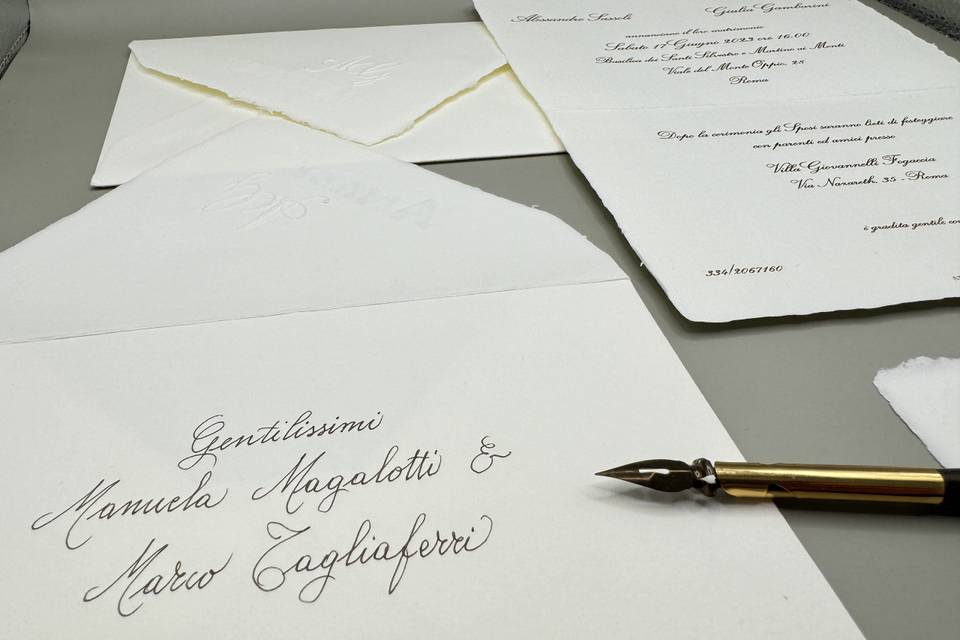 Alessandro Sassoli
Giulia Gambarini
annunciano il loro matrimonio
Sabato 17 Giugno 2023 ore 16.00
Basilica dei Santi Silvestro e Martino ai Monti
Viale del Monte Oppio, 28
Roma
Dopo la cerimonia gli Sposi saranno lieti di festeggiare
con parenti ed amici presso
Villa Giovannelli Fogaccia
Via Nazareth, 35 - Roma
è gradita gentile
334/2067160
Gentilissimi
Manuela Magalotti &
Marco Tagliaferri